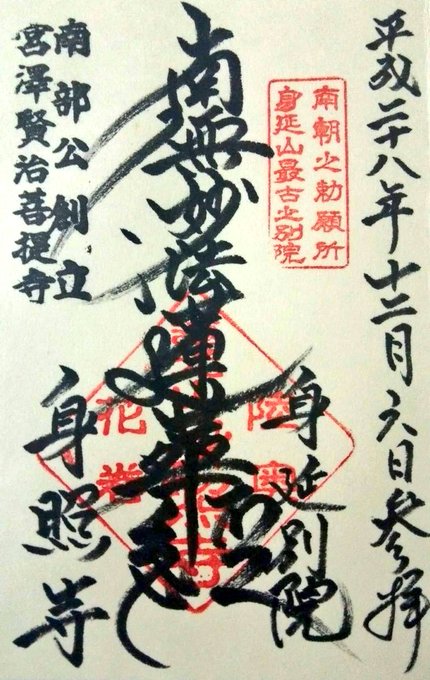 平成二十八年十二月六日参拝
南朝之勅願所
身延山最古之別院
身延別院
南無妙法蓮華経
陸奥
花巻
南部公創立
宮澤賢治菩提寺
身照寺